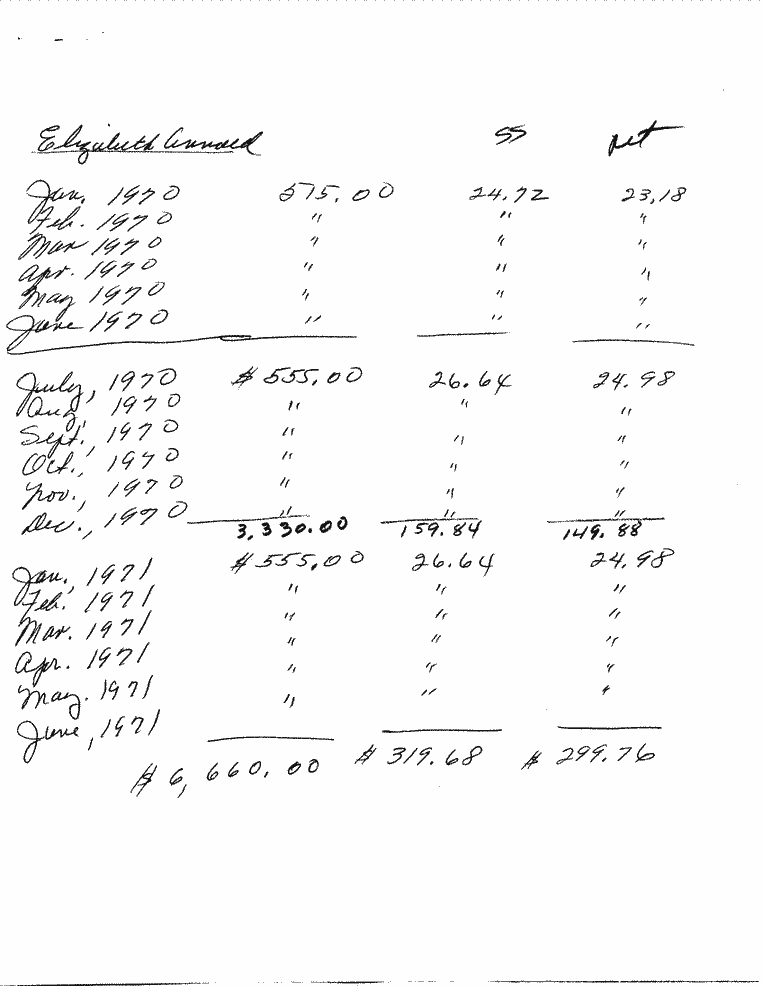 Elizabeth Arnold SS ret
Jan. 1970 515.00 24.72 23.18
Feb. 1970 " " "
Mar 1970 " " "
Apr. 1970 " " "
May 1970 " " "
June 1970 " " "
July, 1970 $ 555.00 26.64 24.98
Aug, 1970 " " "
Sept., 1970 " " "
Oct., 1970 " " "
Nov., 1970 " " "
Dec., 1970 " " "
3,330.00 159.84 149.88
Jan, 1971 $ 555.00 26.64 24.98
Feb. 1971 " " "
Mar. 1971 " " "
Apr. 1971 " " "
May. 1971 " " "
June, 1971 " " "
$ 6,660.00 $ 319.68 $ 299.76